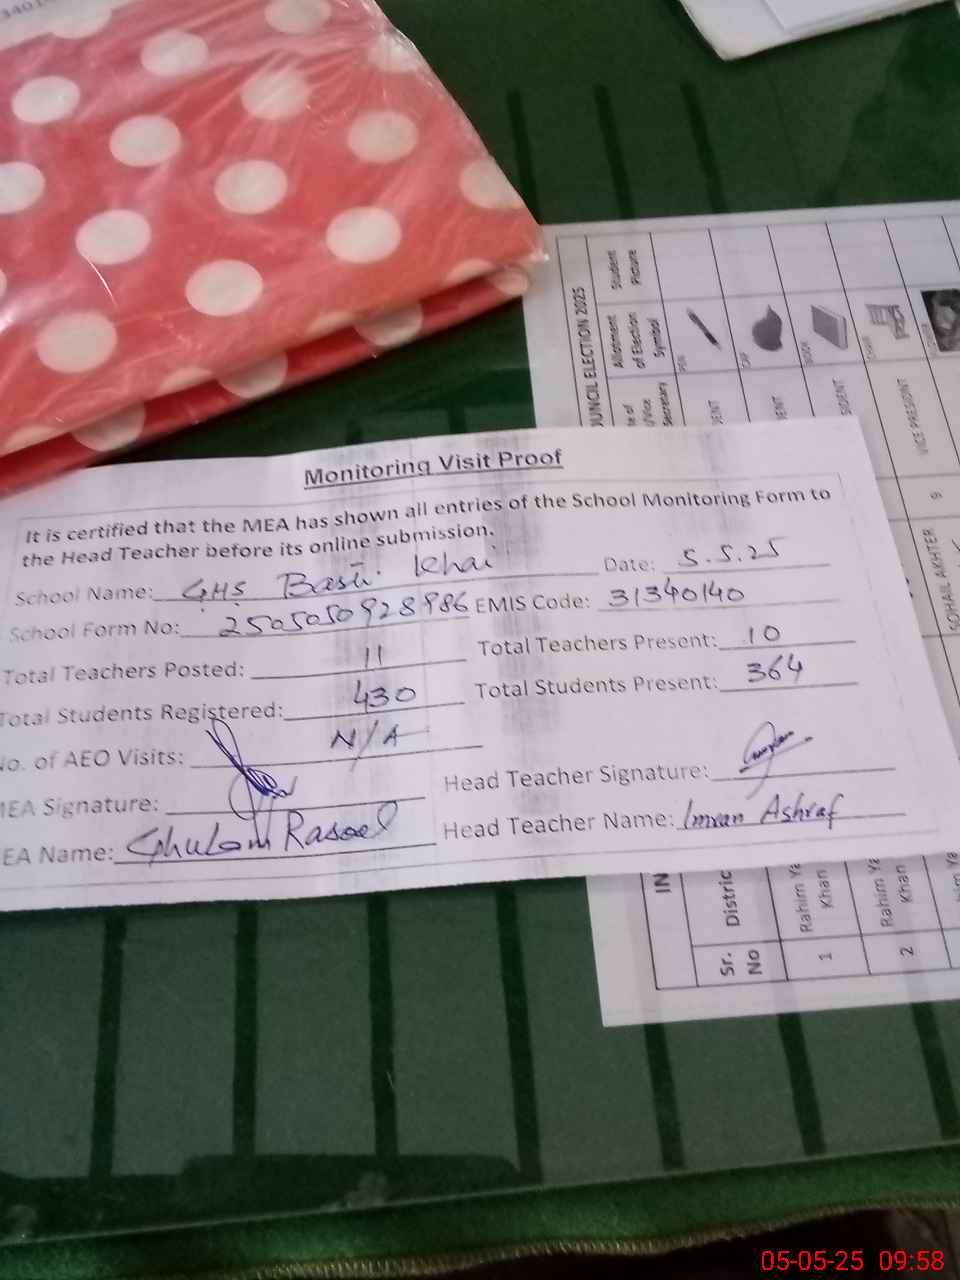 3401
Monitoring Visit Proof
It is certified that the MEA has shown all entries of the School Monitoring Form to
the Head Teacher before its online submission.
School Name: GHS Basti Khai Date: 5.5.25
School Form No: 2505050928986 EMIS Code: 31340140
Total Teachers Posted: 11 Total Teachers Present: 10
Total Students Registered: 430 Total Students Present: 364
No. of AEO Visits: N/A
MEA Signature: Head Teacher Signature:
EA Name: Ghulam Rasool Head Teacher Name: Imran Ashraf
OUNCIL ELECTION 2025
Allotment of Election Symbol
Student Picture
Secretary
PEN
CAP
BOOK
CHAIR
VICE PRESIDNT
9
SOHAIL AKHTER
IN
Sr. No
Distric
1
Rahim Ya
Khan
2
Rahim Ya
Khan
05-05-25 09:58